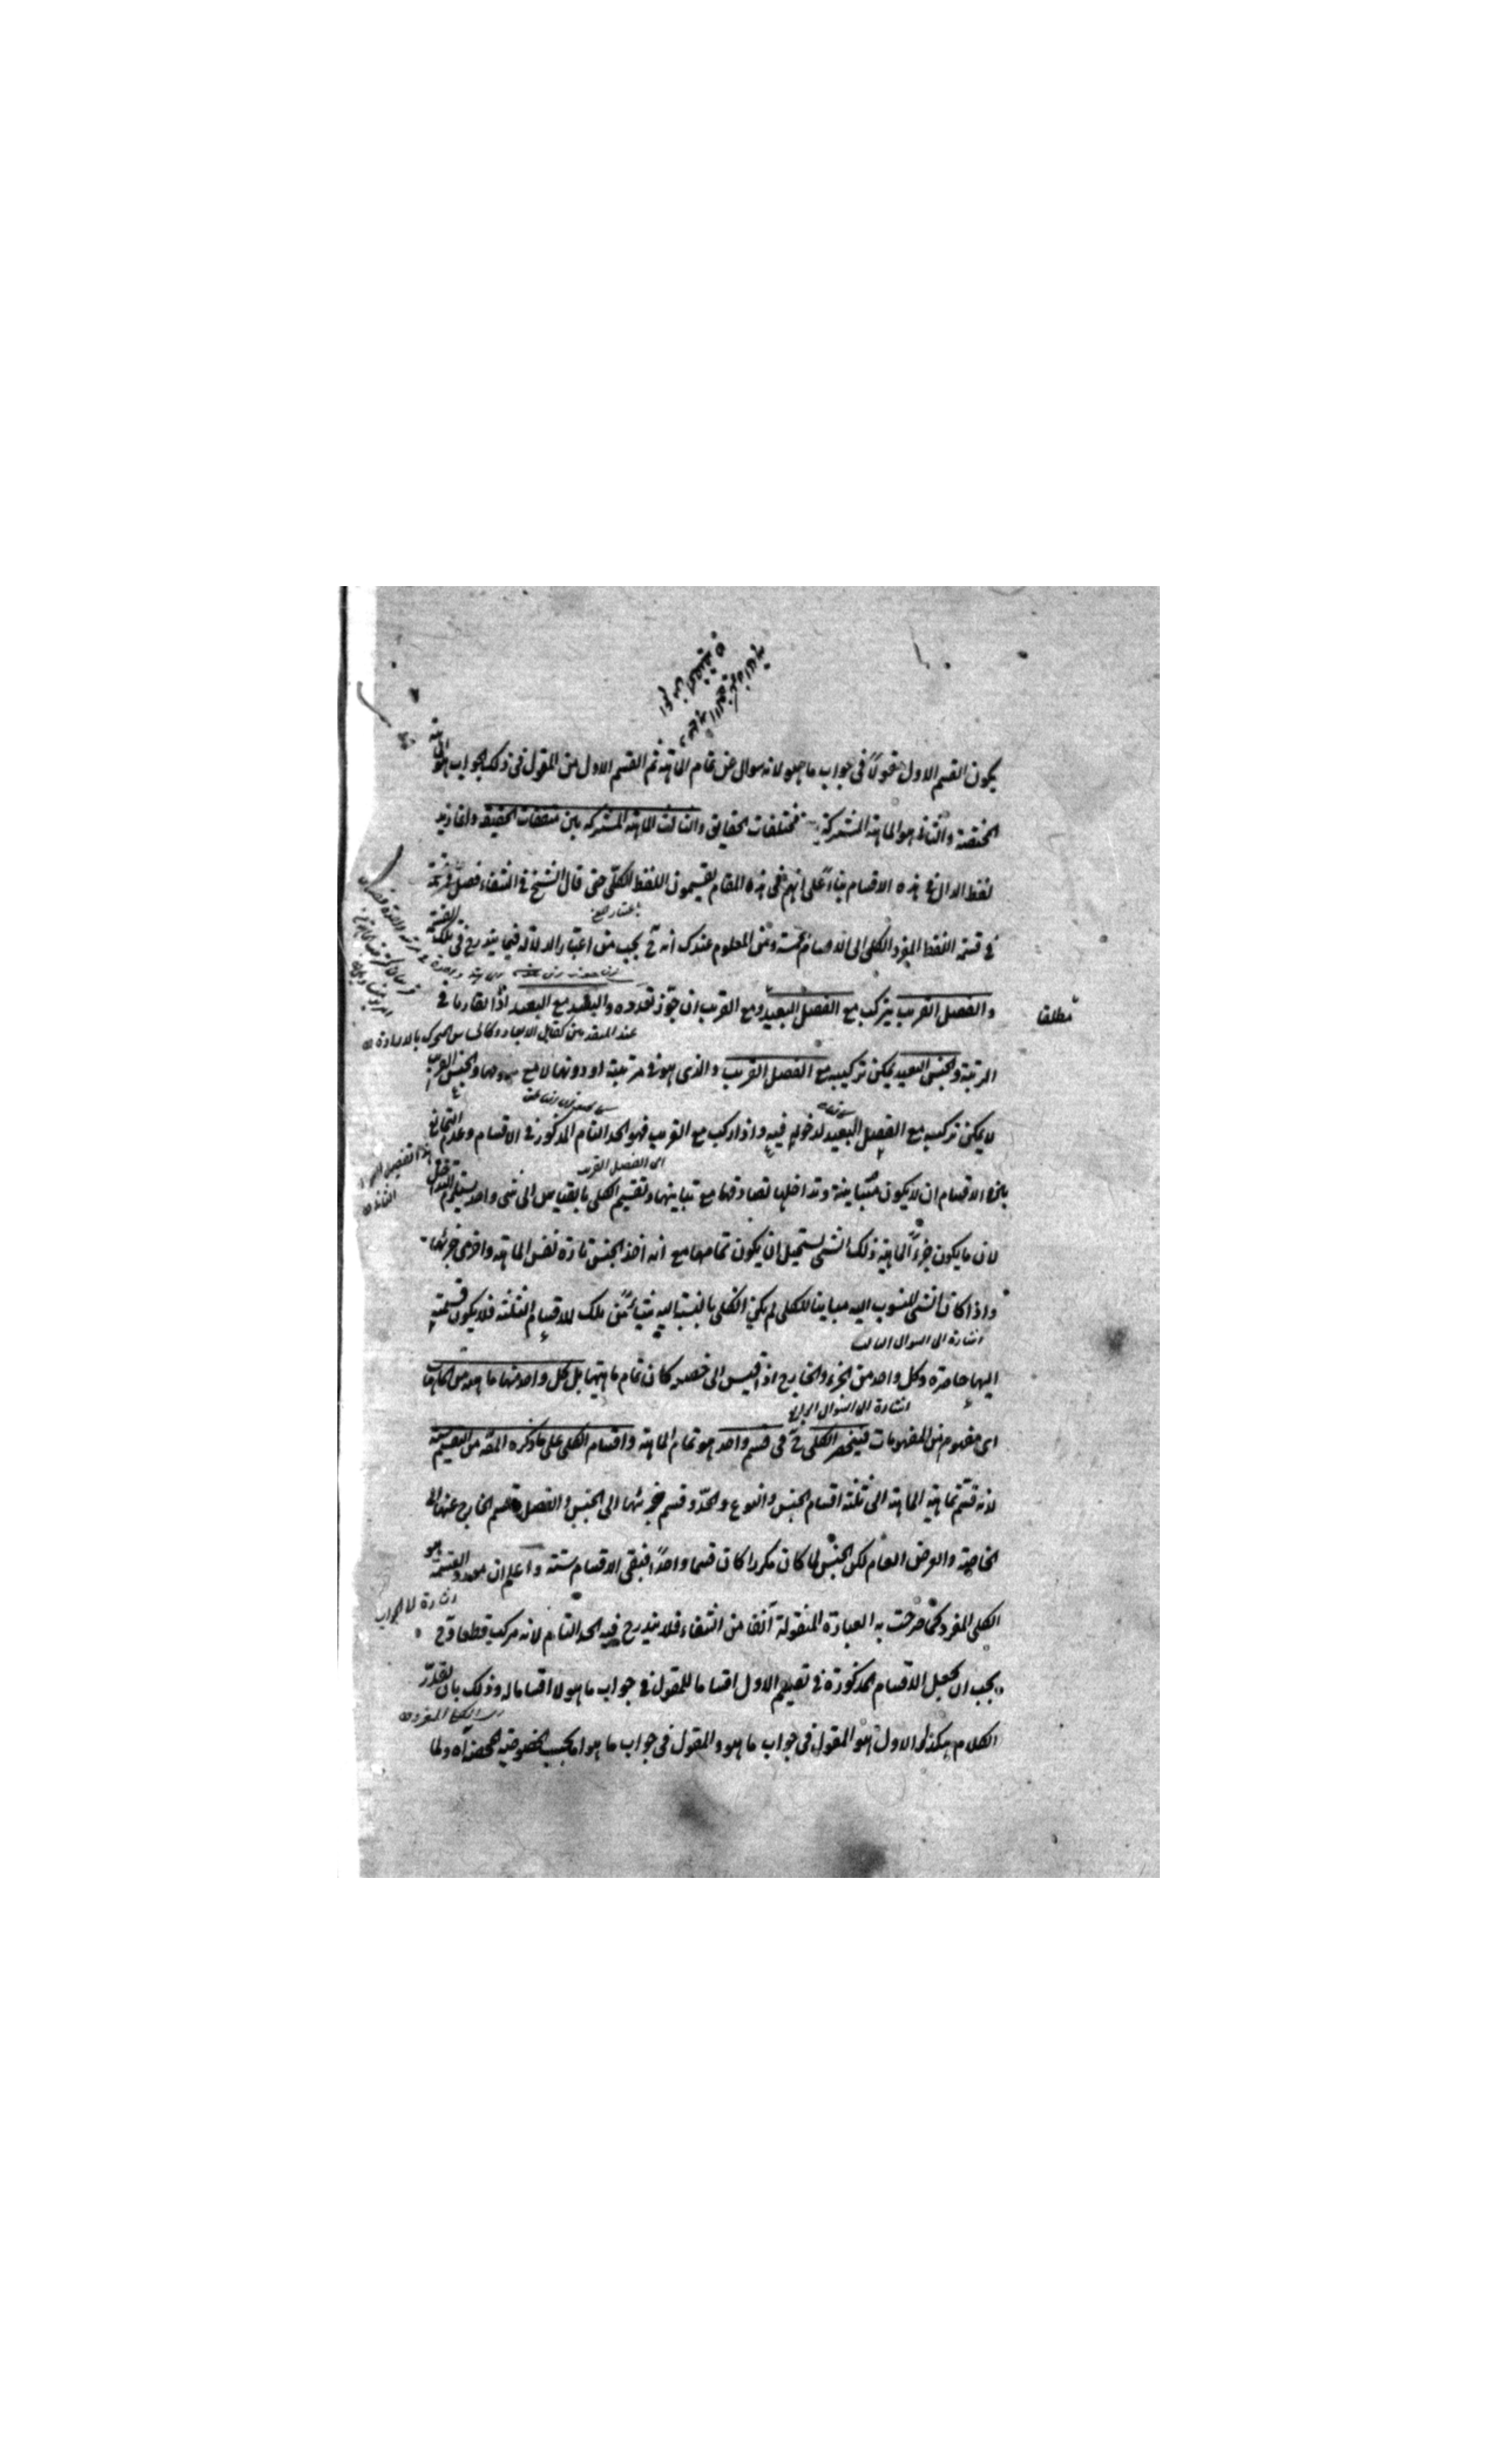 يكون القسم الاول مقولا فى جواب ما هو لانه سوال عن تمام الماهية ثم القسم الاول من المقول فى ذلك الجواب هو الماهية
المختصة والثانى هو الماهية المشتركة بين مختلفات الحقايق والثالث الماهية المشتركة بين متفقات الحقيقة وانما زيد
لفظ الدال فى هذه الاقسام بناءً على انهم فى هذه المقام يقسمون اللفظ الكلى حتى قال الشيخ فى الشفاء فصل
فى قسمة اللفظ المفرد الكلى الى الاقسام الخمسة ومن المعلوم عندك انه ح يجب من اعتبار الدلالة فيما يندرج فى تلك القسمة
والفصل القريب يتركب مع الفصل البعيد ومع القريب ان جوّز تعدده والبعيد مع البعيد اذا تقاربا فى
مطلقا
عند المتقدمين
المرتبة والجنس البعيد يمكن تركيبه مع الفصل القريب والذى هو فى مرتبة او دونها لا مع والجنس القريب
لا يمكن تركيبه مع الفصل البعيد لدخوله فيه واذا ركب مع القريب فهو الحد التام المذكور فى الاقسام وعدم التمانع
اى الفصل القريب
الاقسام ان لا يكون متباينة وتداخلها تصادقها مع تباينها وتقسيم الكلى بالقياس الى شى واحد يستلزم التداخل
لان ما يكون جزءاً لماهية ذلك الشى يستحيل ان يكون تمامها مع انه اخذ الجنس تارة نفس الماهية واخرى جزئها
واذا كان الشى المنسوب اليه مباينا للكلى لم يكن الكلى بالنسبة اليه شيئاً من تلك الاقسام الثلثة فلا يكون قسمته
اشارة الى السوال الثالث
اليها حاصرة وكل واحد من الجزء والخارج اذا قيس الى حصصه كان تمام ماهيتها بل كل واحد منها ماهية من الماهيات
اشارة الى السوال الرابع
اى مفهوم من المفهومات فينحصر الكلى ح فى قسم واحد هو تمام الماهية واقسام الكلى على ما ذكره المصّ من التقسيم ستة
لانه قسّم تمام الماهية الى ثلثة اقسام الجنس والنوع والحدّ وقسم جزئها الى الجنس والفصل وقسم الخارج عنها الى
الخاصة والعرض العام لكن الجنس لما كان مكررا كان قسما واحداً فبقى الاقسام ستة واعلم ان مورد القسمة هو
اشارة الى الجواب
الكلى المفرد كما صرحت به العبارة المنقولة آنفا من الشفاء فلا يندرج فيه الحد التام لانه مركب قطعا وح
يجب ان يجعل الاقسام المذكورة فى تقسيم الاول اقساما للمقول فى جواب ما هو لا اقساما له وذلك بان يقدّر
اى الكلى المفرد
الكلام هكذا والاول هو المقول فى جواب ما هو والمقول فى جواب ما هو اما بحسب الخصوصية المحضة آه ولما